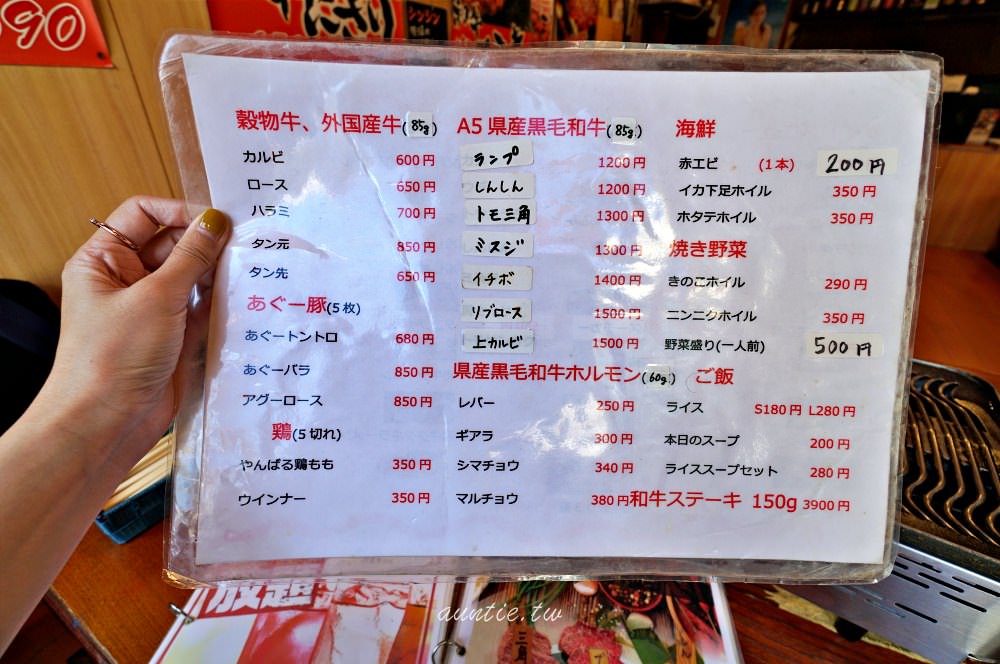 90
穀物牛、外国産牛(85g)
カルビ 600円
ロース 650円
ハラミ 700円
タン元 850円
タン先 650円
あぐー豚(5枚)
あぐートントロ 680円
あぐーバラ 850円
アグーロース 850円
鶏(5切れ)
やんばる鶏もも 350円
ウインナー 350円
A5県産黒毛和牛(85g)
ランプ 1200円
しんしん 1200円
トモ三角 1300円
ミスジ 1300円
イチボ 1400円
リブロース 1500円
上カルビ 1500円
県産黒毛和牛ホルモン(60g)
レバー 250円
ギアラ 300円
シマチョウ 340円
マルチョウ 380円
海鮮
赤エビ (1本) 200円
イカ下足ホイル 350円
ホタテホイル 350円
焼き野菜
きのこホイル 290円
ニンニクホイル 350円
野菜盛り(一人前) 500円
ご飯
ライス S180円 L280円
本日のスープ 200円
ライススープセット 280円
和牛ステーキ 150g 3900円
auntie.tw
三角